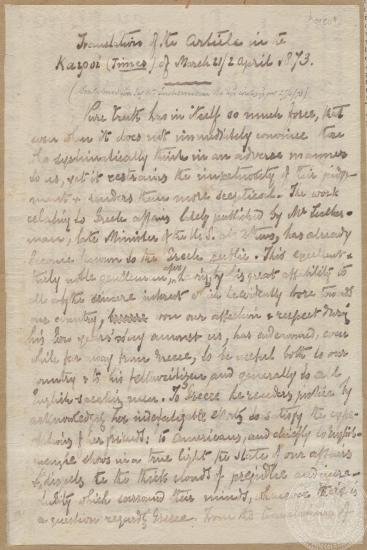 Translation of the Article in the
Καιροί (Times) of March 21/2 April 1873.
Pure truth has in itself so much force, that
even when it does not immediately convince those
who systematically think in an adverse manner
to us, yet it restrains the impetuosity of their judg-
ment & renders them more sceptical. The work
relating to Greek affairs lately published by Mr Tucker-
man, late Minister of the U.S. at Athens, has already
become known to the Greek public. This excellent &
truly noble gentleman, after having by his great affability to
all & by the sincere interest he evidently bore towards
our country, won our affection & respect during
his few years' stay amongst us, has endeavored, even
while far away from Greece, to be useful both to our
country & to his fellow citizens and generally to all
English-speaking men. To Greece he renders justice by
acknowledging her indefatigable efforts to satisfy the expec-
tations of her friends; to Americans, and chiefly to English-
men, he shows in a true light the state of our affairs
& dispels the thick clouds of prejudice and incre-
dulity which surround their minds, whenever there is
a question regarding Greece. From the